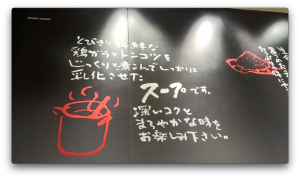 とびきり新鮮な
鶏ガラとトンコツを
じっくりと煮こんでしっかりと
乳化させた
スープです。
深いコクと
まろやかな時を
お楽しみ下さい。